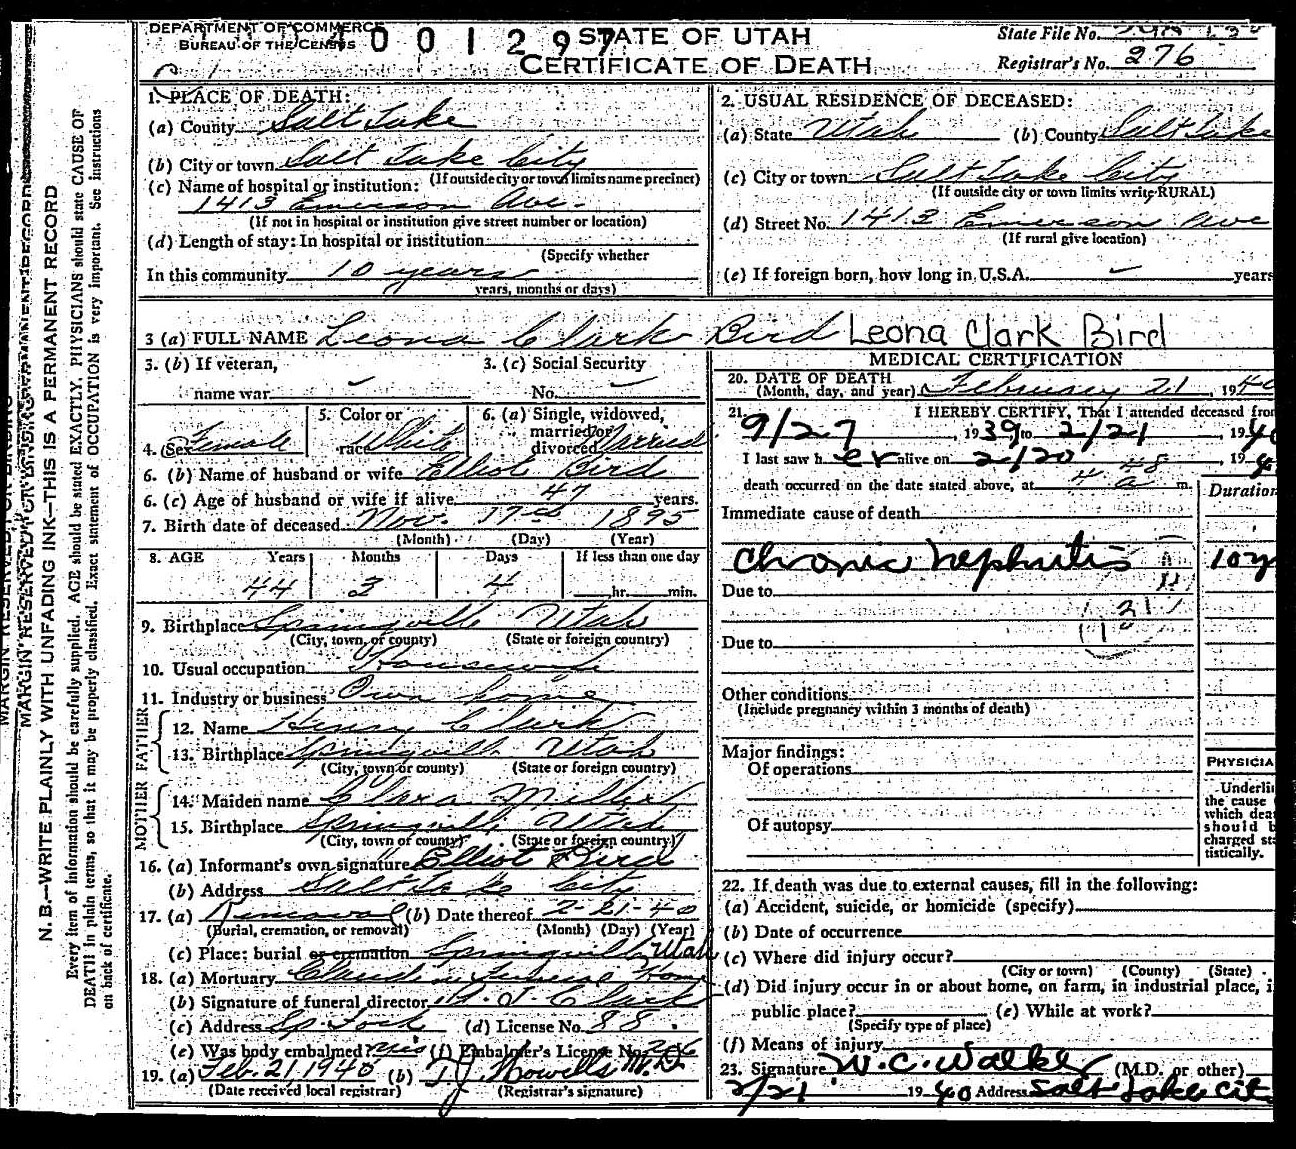 DEPARTMENT OF COMMERCE
BUREAU OF THE CENSUS
4001297
STATE OF UTAH
CERTIFICATE OF DEATH
State File No.
Registrar's No. 276
1. PLACE OF DEATH:
(a) County Salt Lake
(b) City or town Salt Lake City
(If outside city or town limits name precinct)
(c) Name of hospital or institution:
1413 Emerson Ave.
(If not in hospital or institution give street number or location)
(d) Length of stay: In hospital or institution
(Specify whether
In this community 10 years
years, months or days)
2. USUAL RESIDENCE OF DECEASED:
(a) State Utah (b) County Salt Lake
(c) City or town Salt Lake City
(If outside city or town limits write RURAL)
(d) Street No. 1413 Emerson Ave
(If rural give location)
(e) If foreign born, how long in U.S.A. years
3 (a) FULL NAME Leona Clark Bird Leona Clark Bird
3. (b) If veteran,
name war
3. (c) Social Security
No.
4. Sex Female
5. Color or
race White
6. (a) Single, widowed,
married or
divorced Married
6. (b) Name of husband or wife Elliot Bird
6. (c) Age of husband or wife if alive 47 years.
7. Birth date of deceased Nov. 17 1895
(Month) (Day) (Year)
8. AGE Years Months Days If less than one day
44 3 4 hr. min.
9. Birthplace Springville Utah
(City, town, or county) (State or foreign country)
10. Usual occupation Housewife
11. Industry or business Own home
FATHER
12. Name Henry Clark
13. Birthplace Springville Utah
(City, town or county) (State or foreign country)
MOTHER
14. Maiden name Clara Miller
15. Birthplace Springville Utah
(City, town or county) (State or foreign country)
16. (a) Informant's own signature Elliot Bird
(b) Address Salt Lake City
17. (a) Removal (b) Date thereof 2-21-40
(Burial, cremation, or removal) (Month) (Day) (Year)
(c) Place: burial or cremation Springville, Utah
18. (a) Mortuary Claudin Funeral Home
(b) Signature of funeral director Clark
(c) Address Sp. Fork (d) License No. 88.
(e) Was body embalmed? yes (f) Embalmer's License No. 206
19. (a) Feb. 21, 1940 (b) T. J. Howells M.D.
(Date received local registrar) (Registrar's signature)
MEDICAL CERTIFICATION
20. DATE OF DEATH
(Month, day, and year) February 21, 1940
21. I HEREBY CERTIFY, That I attended deceased from
9/27, 1939 to 2/21, 1940
I last saw her alive on 2/20, 194
death occurred on the date stated above, at 4 48 a m.
Duration
Immediate cause of death
Chronic Nephritis 10 y
Due to
131
Due to
Other conditions
(Include pregnancy within 3 months of death)
Major findings:
Of operations
Of autopsy
PHYSICIA
Underli
the cause
which dea
should b
charged sta
tistically.
22. If death was due to external causes, fill in the following:
(a) Accident, suicide, or homicide (specify)
(b) Date of occurrence
(c) Where did injury occur?
(City or town) (County) (State)
(d) Did injury occur in or about home, on farm, in industrial place, i
public place? (e) While at work?
(Specify type of place)
(f) Means of injury
23. Signature W. C. Walker (M.D. or other)
2/21 1940 Address Salt Lake City
MARGIN RESERVED FOR BINDING
N. B.—WRITE PLAINLY WITH UNFADING INK—THIS IS A PERMANENT RECORD
Every item of information should be carefully supplied. AGE should be stated EXACTLY. PHYSICIANS should state CAUSE OF
DEATH in plain terms, so that it may be properly classified. Exact statement of OCCUPATION is very important. See instructions
on back of certificate.